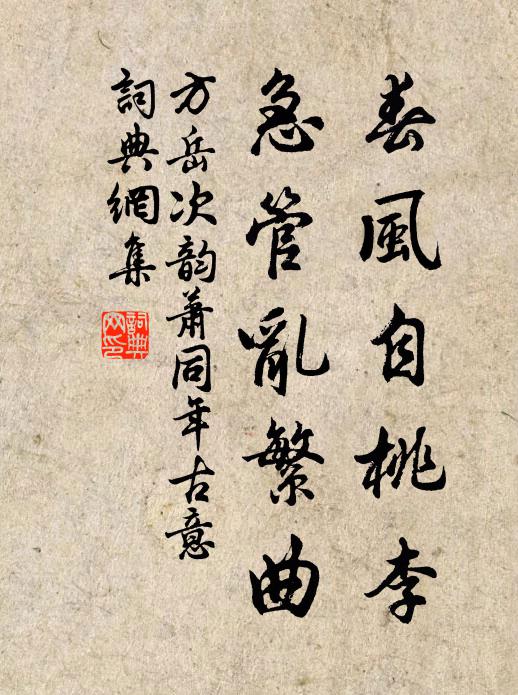 春風自桃李
急管亂繁曲
方岳次韵蕭同年古意
詞典網集
詞典網印